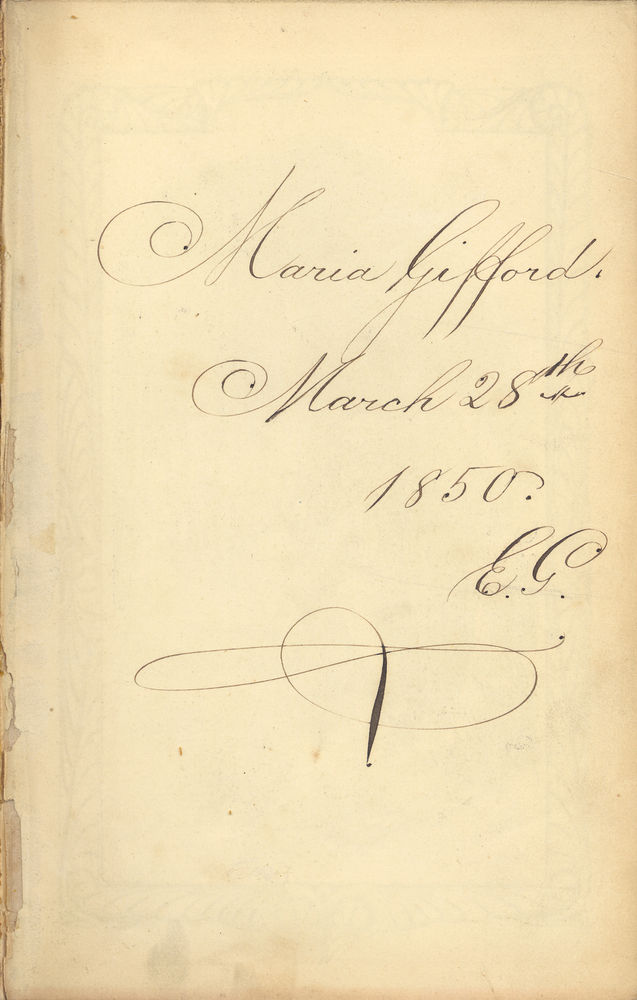 Maria Gifford.
March 28th
1850.
E.G.